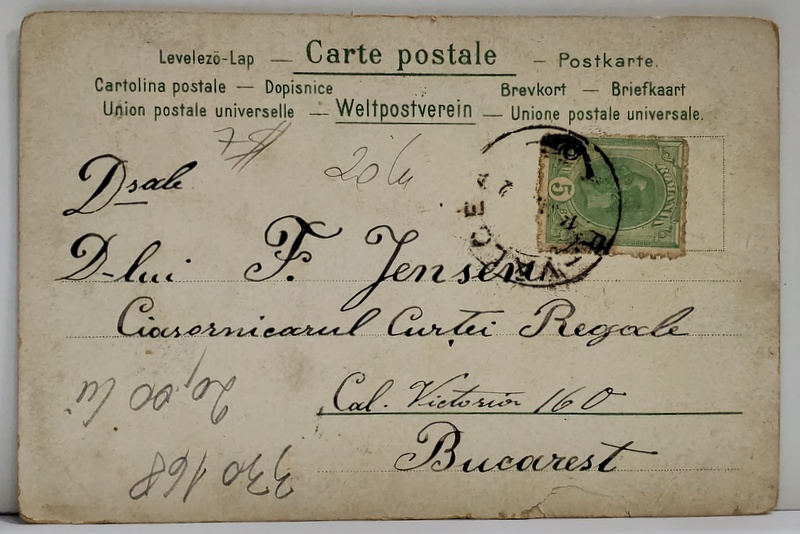 Levelezö-Lap — Carte postale — Postkarte.
Cartolina postale — Dopisnice Brevkort — Briefkaart
Union postale universelle — Weltpostverein — Unione postale universale.
7$ 20 lei
ROMANIA
5
VALCEA
Dsale
D-lui F. Jensen
Ciasornicarul Curței Regale
Cal. Victoria 160
Bucarest
20,00 lei
330168